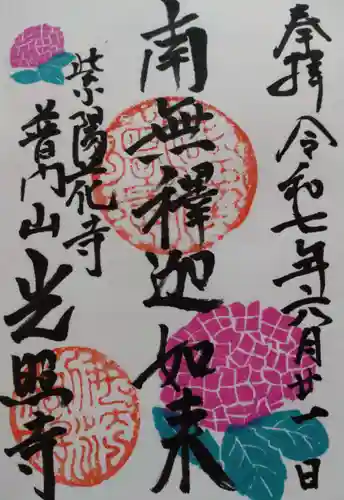 奉拝 令和七年六月廿一日
南無釋迦如来
紫陽花寺
普門山光照寺